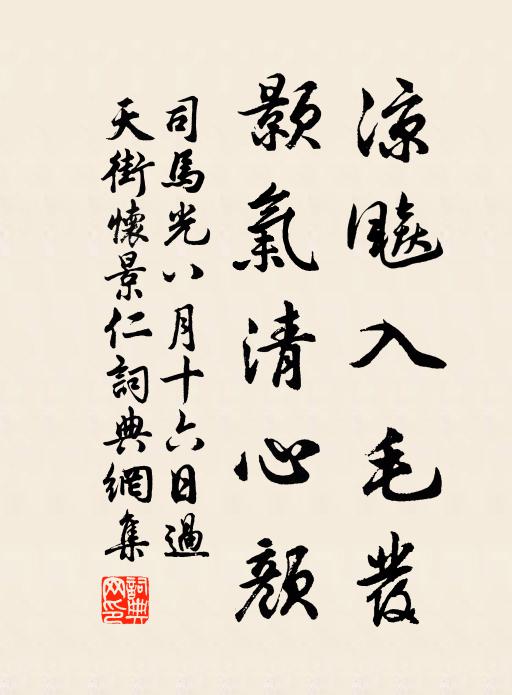 涼飈入毛發
顥氣清心顏
司馬光八月十六日過
天街懷景仁詞典網集
詞典网印